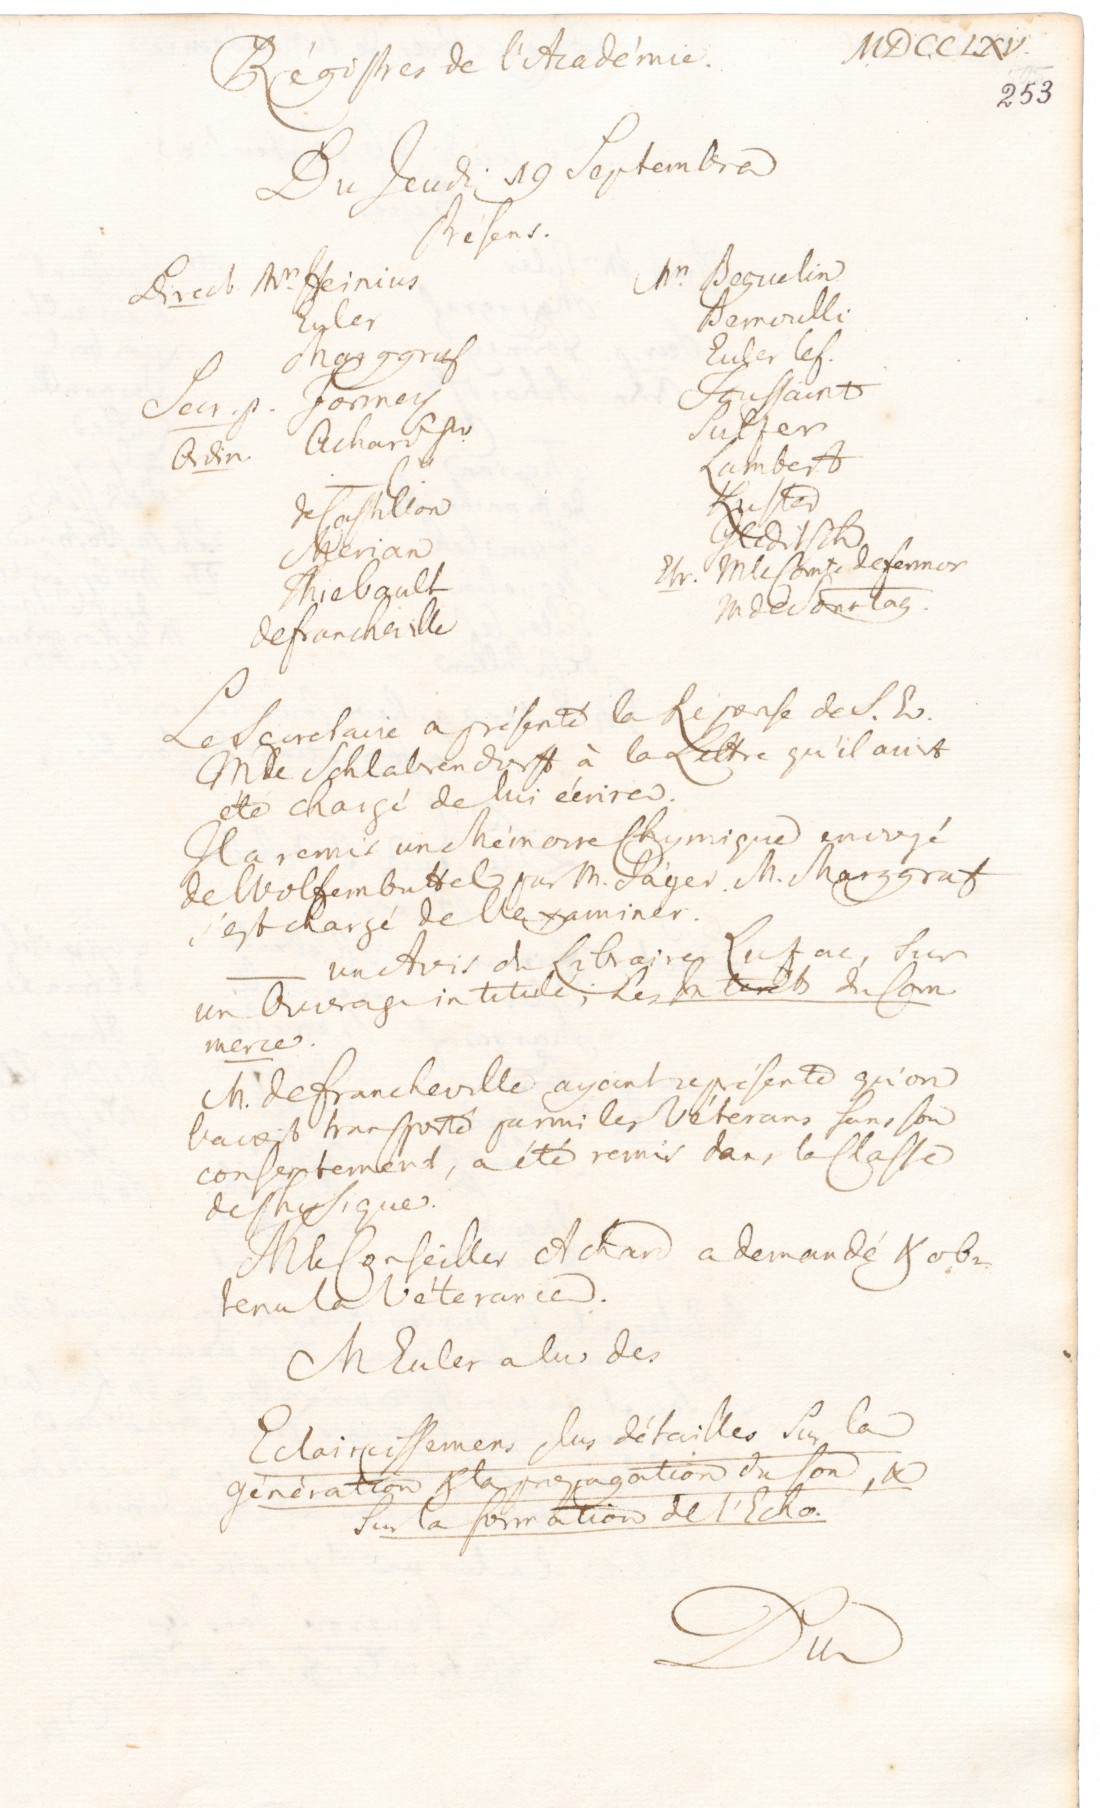 Régistres de l'Académie.
MDCCLXV.
253
Du Jeudi 19 Septembre
Présens.
Direct. Mrs. Heinius
Euler
Marggraf
Secr. p. Formey
Ordin. Achard
de Castillon
Merian
Thiebault
de Francheville
Mrs. Beguelin
Bernoulli
Euler le f.
Toussaint
Sulzer
Lambert
Kuster
Gleditsch
Etr. M le Comte de Fermor
M de Sonntag.
Le Secretaire a présenté la Réponse de S. E.
M de Schlabrendorff à la Lettre qu'il avoit
été chargé de lui écrire.
Il a remis un Mémoire Chymique envoyé
de Wolfembuttel par M. Jäger. M. Marggraf
s'est chargé de l'examiner.
un Avis du Libraire Luzac, sur
un Ouvrage intitulé, Les Interêts du Com
merce.
M. de Francheville ayant représenté qu'on
l'avoit transporté parmi les Véterans sans son
consentement, a été remis dans la Classe
de Physique.
M le Conseiller Achard a demandé & ob-
tenu la Véterance.
M Euler a lu des
Eclaircissemens plus détaillés sur la
génération & la propagation du son, &
sur la formation de l'Echo.
Du